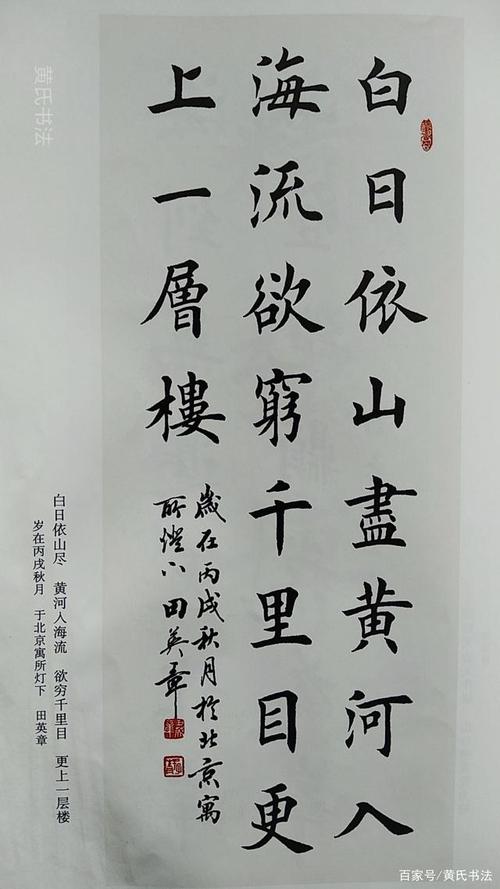 白日依山盡黄河入
海流欲窮千里目更
上一層樓
歲在丙戌秋月於北京寓
所燈下田英章
白日依山尽 黄河入海流 欲穷千里目 更上一层楼
岁在丙戌秋月 于北京寓所灯下 田英章
黄氏书法
百家号/黄氏书法